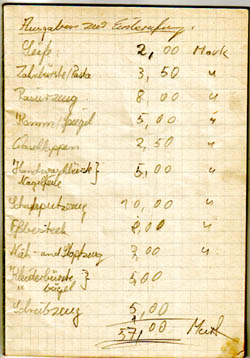 Ausgaben zur Einberufung.
Seife: 2,00 Mark
Zahnbürste/Pasta 3,50 "
Rasierzeug 8,00 "
Kamm/Spiegel 5,00 "
Waschlappen 2,50 "
Handwaschbürste } 5,00 "
Nagelfeile
Schuhputzzeug 10,00 "
Eßbesteck 2,00 "
Näh- und Stopfzeug 3,00 "
Kleiderbürste } 5,00
" bügel
Schreibzeug 5,00
57,00 Mark